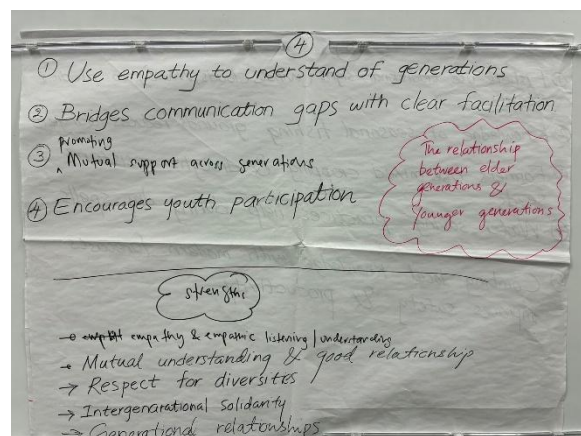 ④
① Use empathy to understand of generations
② Bridges communication gaps with clear facilitation
promoting
③ ^ Mutual support across generations
④ Encourages youth participation
The relationship
between elder
generations &
younger generations
strengths
→ empathy & empathic listening | understanding
→ Mutual understanding & good relationship
→ Respect for diversites
→ Intergenarational solidarity
→ Generational relationships